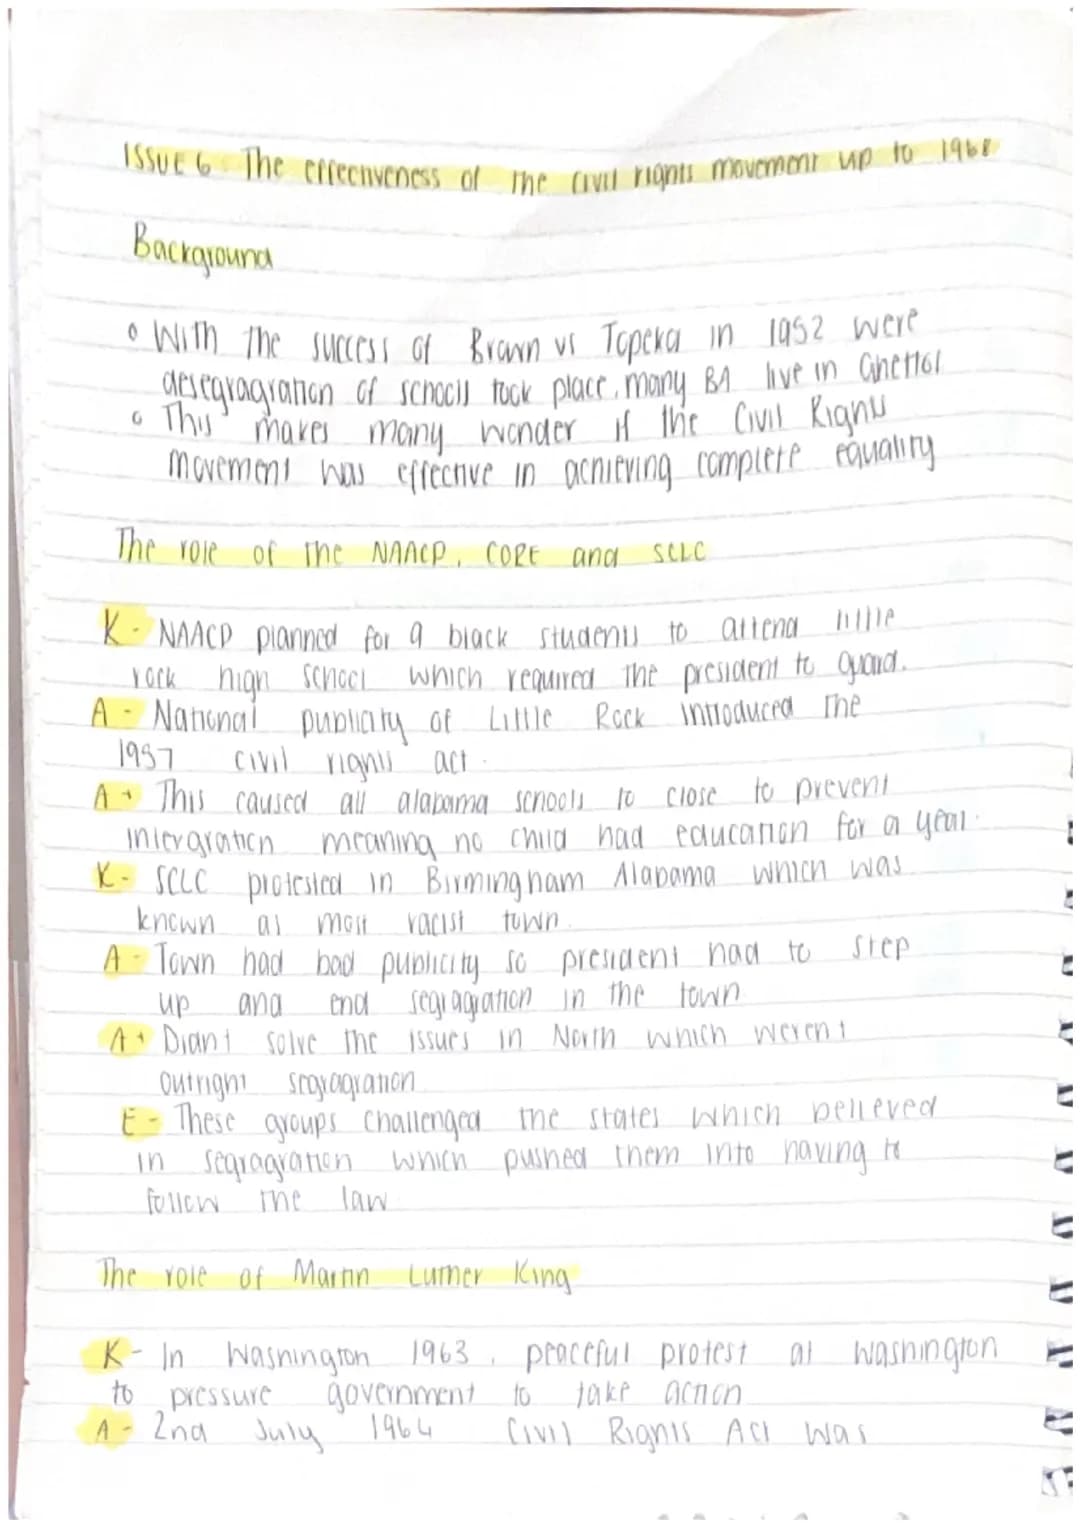 ISSUE 6: The effectiveness of the civil rights movement up to 1968
Background
• With the success of Brown vs Topeka in 1952 were
desegragration of schools took place, many BA live in Ghettos
• This makes many wonder if the Civil Rights
movement was effective in achieving complete equality
The role of the NAACP, CORE and SCLC
K - NAACP planned for 9 black students to attend little
rock high school which required the president to guard.
A - National publicity of Little Rock introduced the
1957 civil rights act.
A+ This caused all alabama schools to close to prevent
intergration meaning no child had education for a year.
K - SCLC protested in Birmingham Alabama which was
known as most racist town.
A - Town had bad publicity so president had to step
up and end segragration in the town
A+ Didnt solve the issues in North which werent
outright segragration
E - These groups challenged the states which believed
in segragration which pushed them into having to
follow the law
The role of Martin Luther King
K - In Washington 1963, peaceful protest at Washington
to pressure government to take action
A - 2nd July 1964 Civil Rights Act was